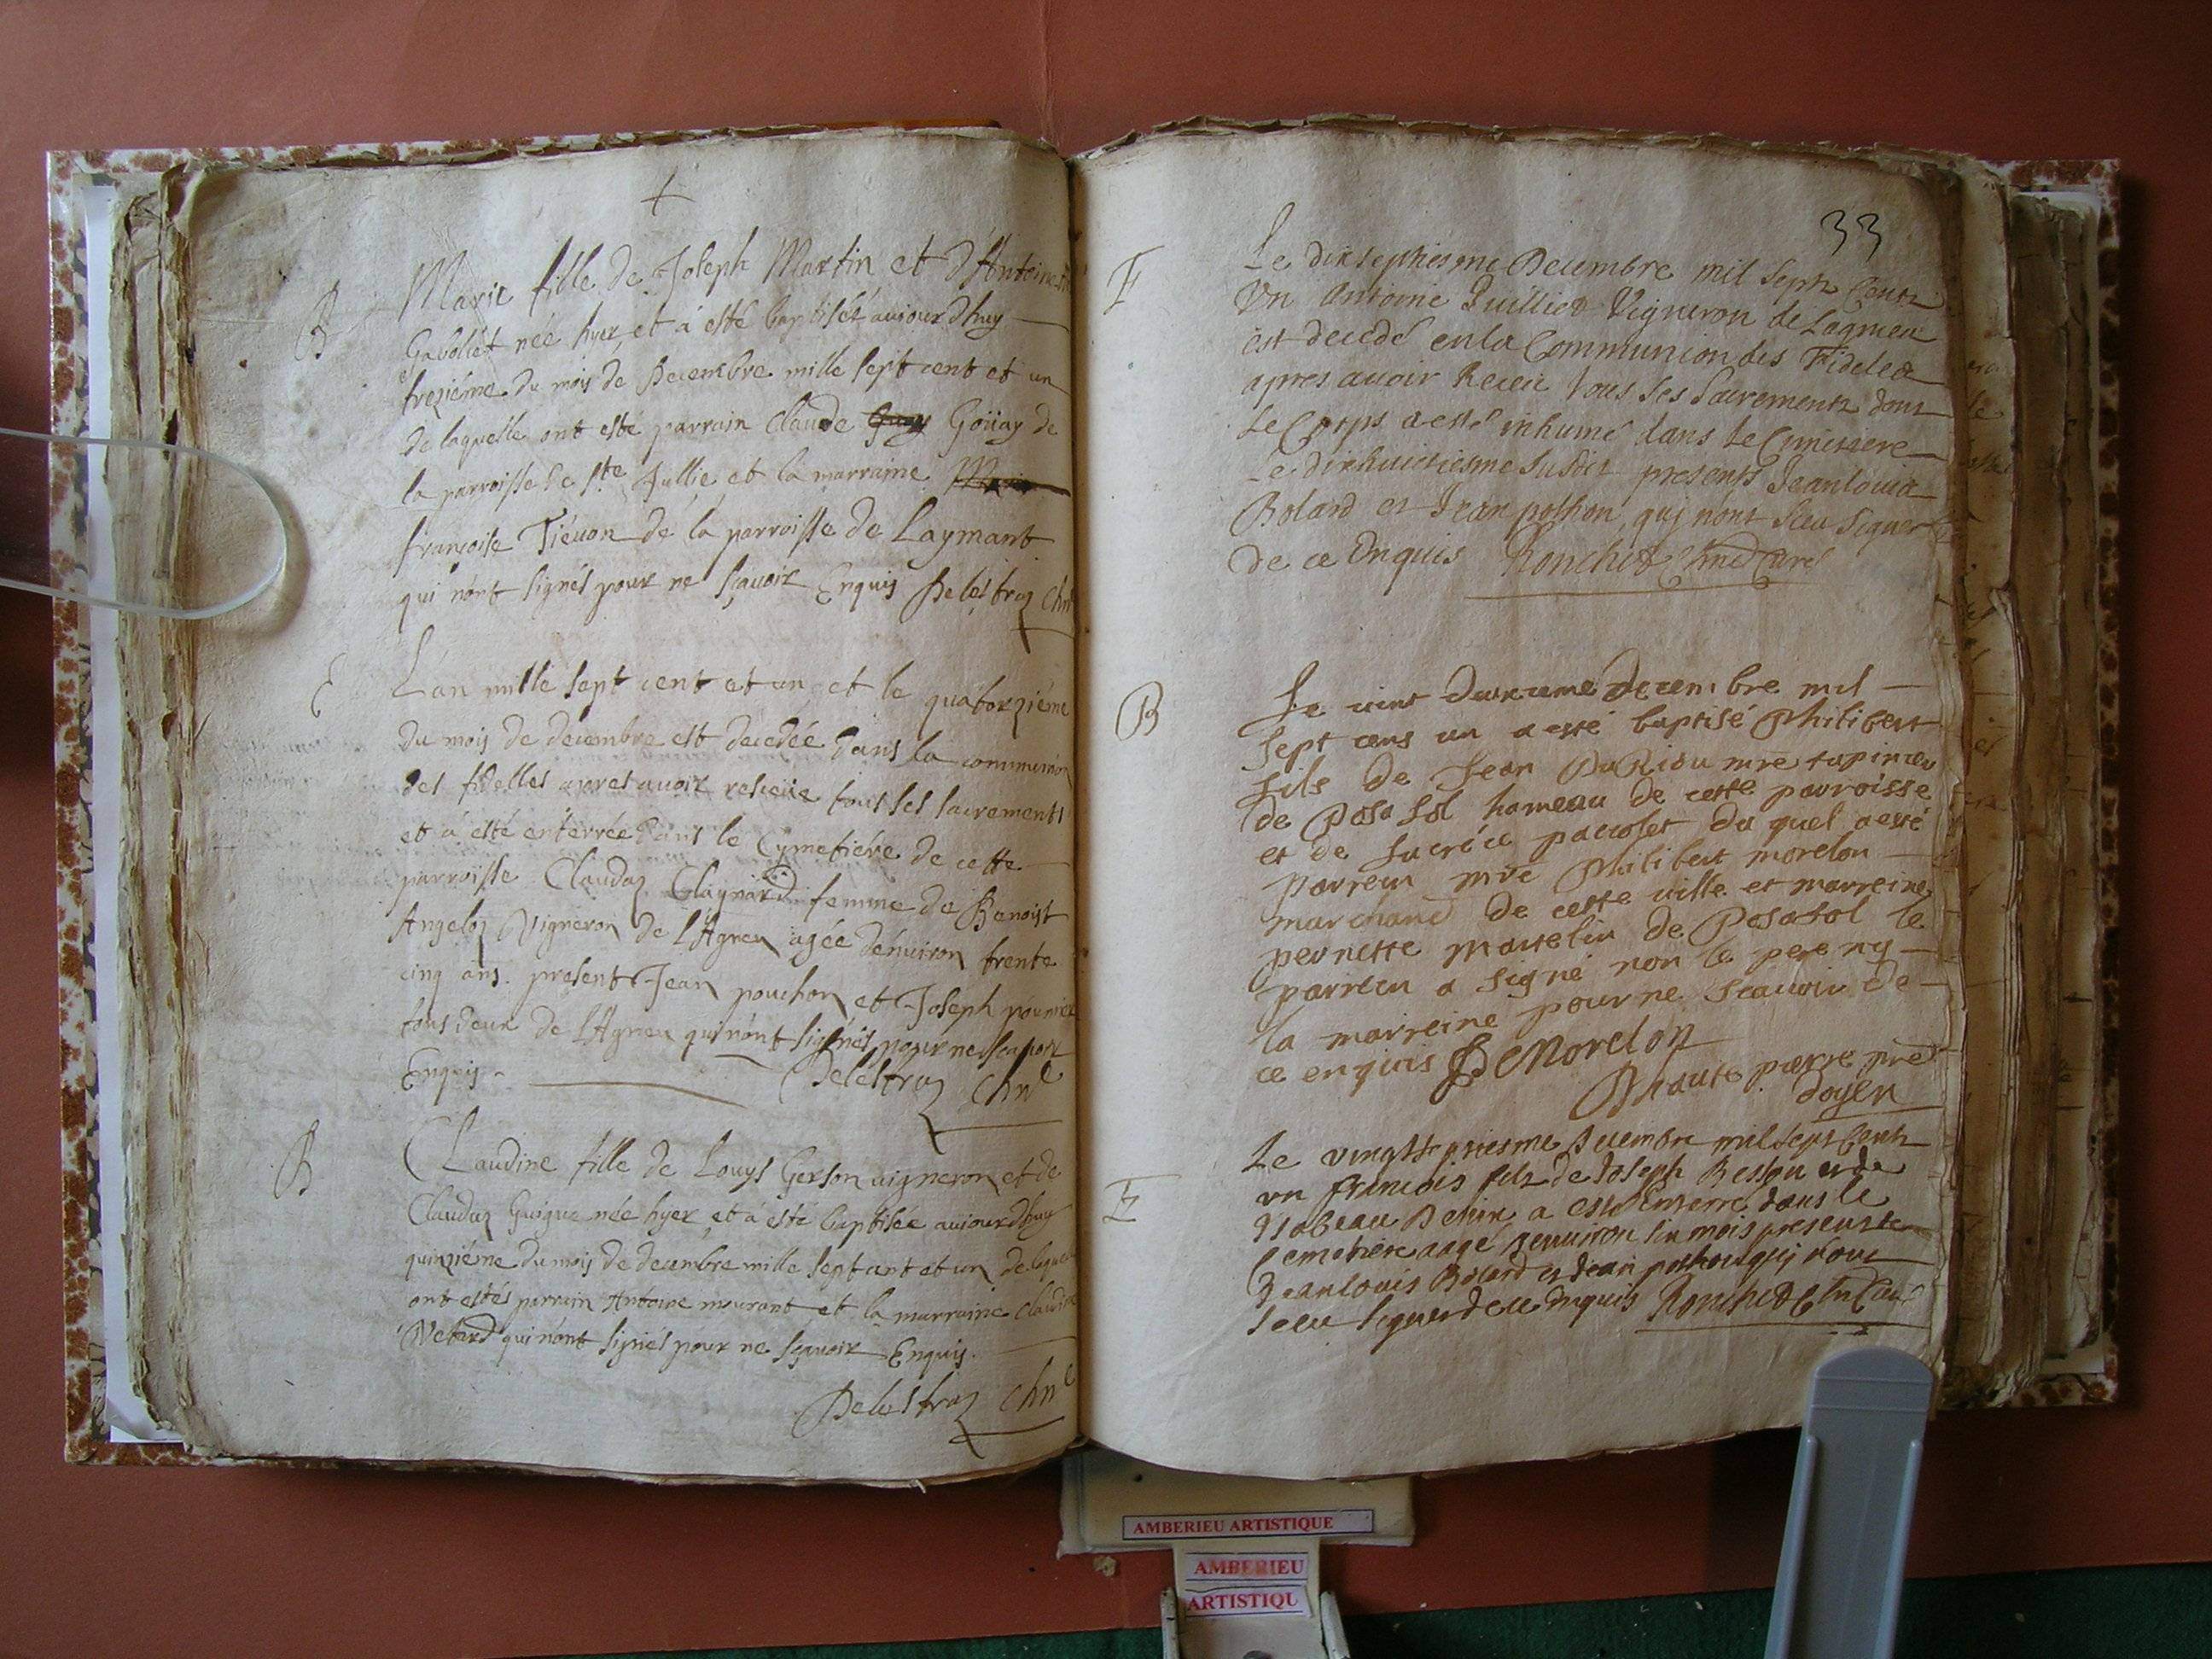 +
B
Marie fille de Joseph Martin et d'Antoinette
Gabollét née hyer, et à esté baptiséé auiourdhuy
treziéme du mois de Decembre mille sept cent et un
de laquelle ont esté parrain Claude Goüay de
la parroisse de Ste Jullie et la marraine
françoise Tiéuon de la parroisse de Laymant
qui nónt signés pour ne sçauoir Enquis Deléstraz Chne
E
Lan mille sept cent et un et le quatorziéme
du mois de decembre est decedée dans la communion
des fidelles apres auoir receüe tous ses sacrements
et à esté enterrée dans le Cymetiére de cette
parroisse Claudaz Claynard femme de Benoist
Angeloz Vigneron de l'Agneu agée dénuiron trente
cinq ans. present Jean pouchon et Joseph
tous deux de l'Agneu qui nónt signés pour ne sçauoir
Enquis - Deléstraz Chne
B
Claudine fille de Louys Gerson uigneron et de
Claudaz Guigue née hyer et à esté baptisée auiourdhuy
quinziéme du mois de decembre mille sept cent et un de laquelle
ont estés parrain Antoine mourant et la marraine Claudine
Netard qui nónt signés pour ne sçauoir Enquis.
Delestraz Chne
33
E
Le dixseptiesme Decembre mil sept Cents
Vn Antoine Juillied Vigneron de Lagnieu
est decedé en la Communion des Fideles
apres auoir Receu tous ses Sacrements dont
Le Corps a esté inhumé dans le Cimetiere
Le dixhuictiesme susdit presents Jeanlouis
Bolard et Jean pothon, quj nónt sceu signer
de ce Enquis Ronchet Curé
B
Le vint deuxieme decembre mil
sept cens un a esté baptisé Philibert
fils de Jean DuRiou mre
de Posafol hameau de cette parroisse
et de Lucréce pacolet du quel a esté
parrein mre Philibert morelon
marchand de cette uille et marreine
pernette Martelin de Posafol le
parrein a signé non le pere ny
la marreine pour ne scauoir de
ce enquis Morelon
doyen
E
Le vingtt decembre mil sept Cents
vn francois fils de Joseph Besson et de
Ysabeau a esté Enterré dans le
Cemetiere aagé denuiron six mois presents
Jeanlouis Bolard et Jean pothon quj nont
sceu signer de ce Enquis Ronchet
AMBERIEU ARTISTIQUE
AMBERIEU
ARTISTIQU